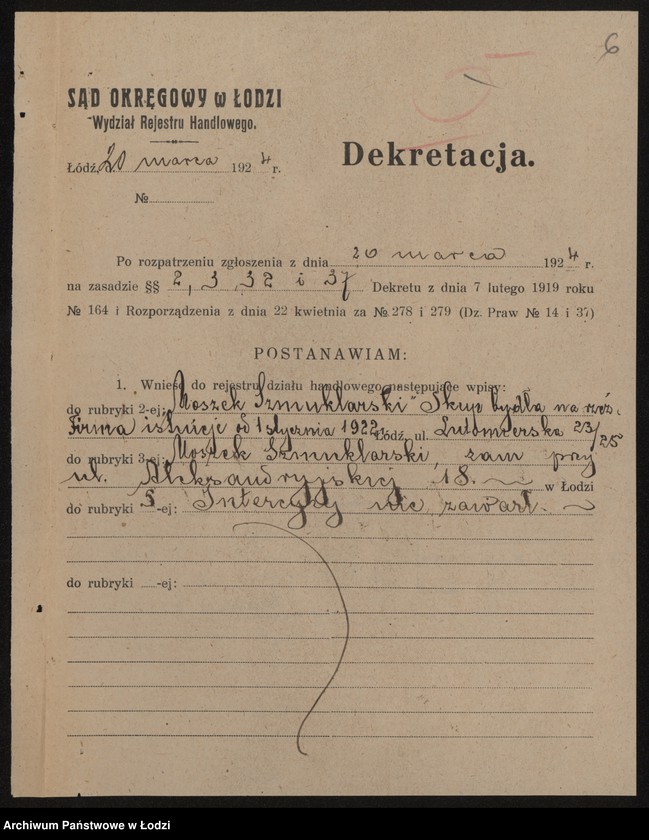 6
SĄD OKRĘGOWY w ŁODZI
Wydział Rejestru Handlowego.
Łódź, 20 marca 1924 r.
Dekretacja.
№
Po rozpatrzeniu zgłoszenia z dnia 20 marca 1924 r.
na zasadzie §§ 2, 3, 32 i 37 Dekretu z dnia 7 lutego 1919 roku
№ 164 i Rozporządzenia z dnia 22 kwietnia za № 278 i 279 (Dz. Praw № 14 i 37)
POSTANAWIAM:
1. Wnieść do rejestru działu handlowego następujące wpisy:
do rubryki 2-ej: „Moszek Szmuklarski" Skup bydła na rzeź.
Firma istnieje od 1 stycznia 1922 r. Łódź, ul. Lutomierska 23/25
do rubryki 3-ej: Moszek Szmuklarski, zam przy
ul. Aleksandryjskiej 18. w Łodzi
do rubryki 5-ej: Intercyzy nie zawarł.
do rubryki -ej:
Archiwum Państwowe w Łodzi